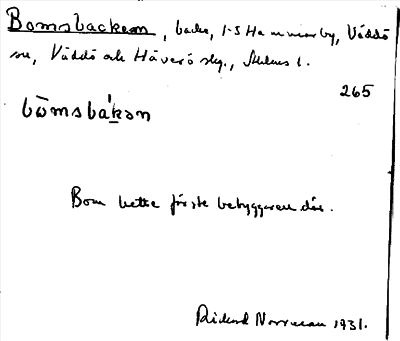 Bomsbacken, backe, 1-5 Hammarby, Väddö
sn, Väddö och Häverö skg., Sthlms l.
265
bo̅msbákən
Bom hette förste bebyggaren där.
Rickard Norrman 1931.